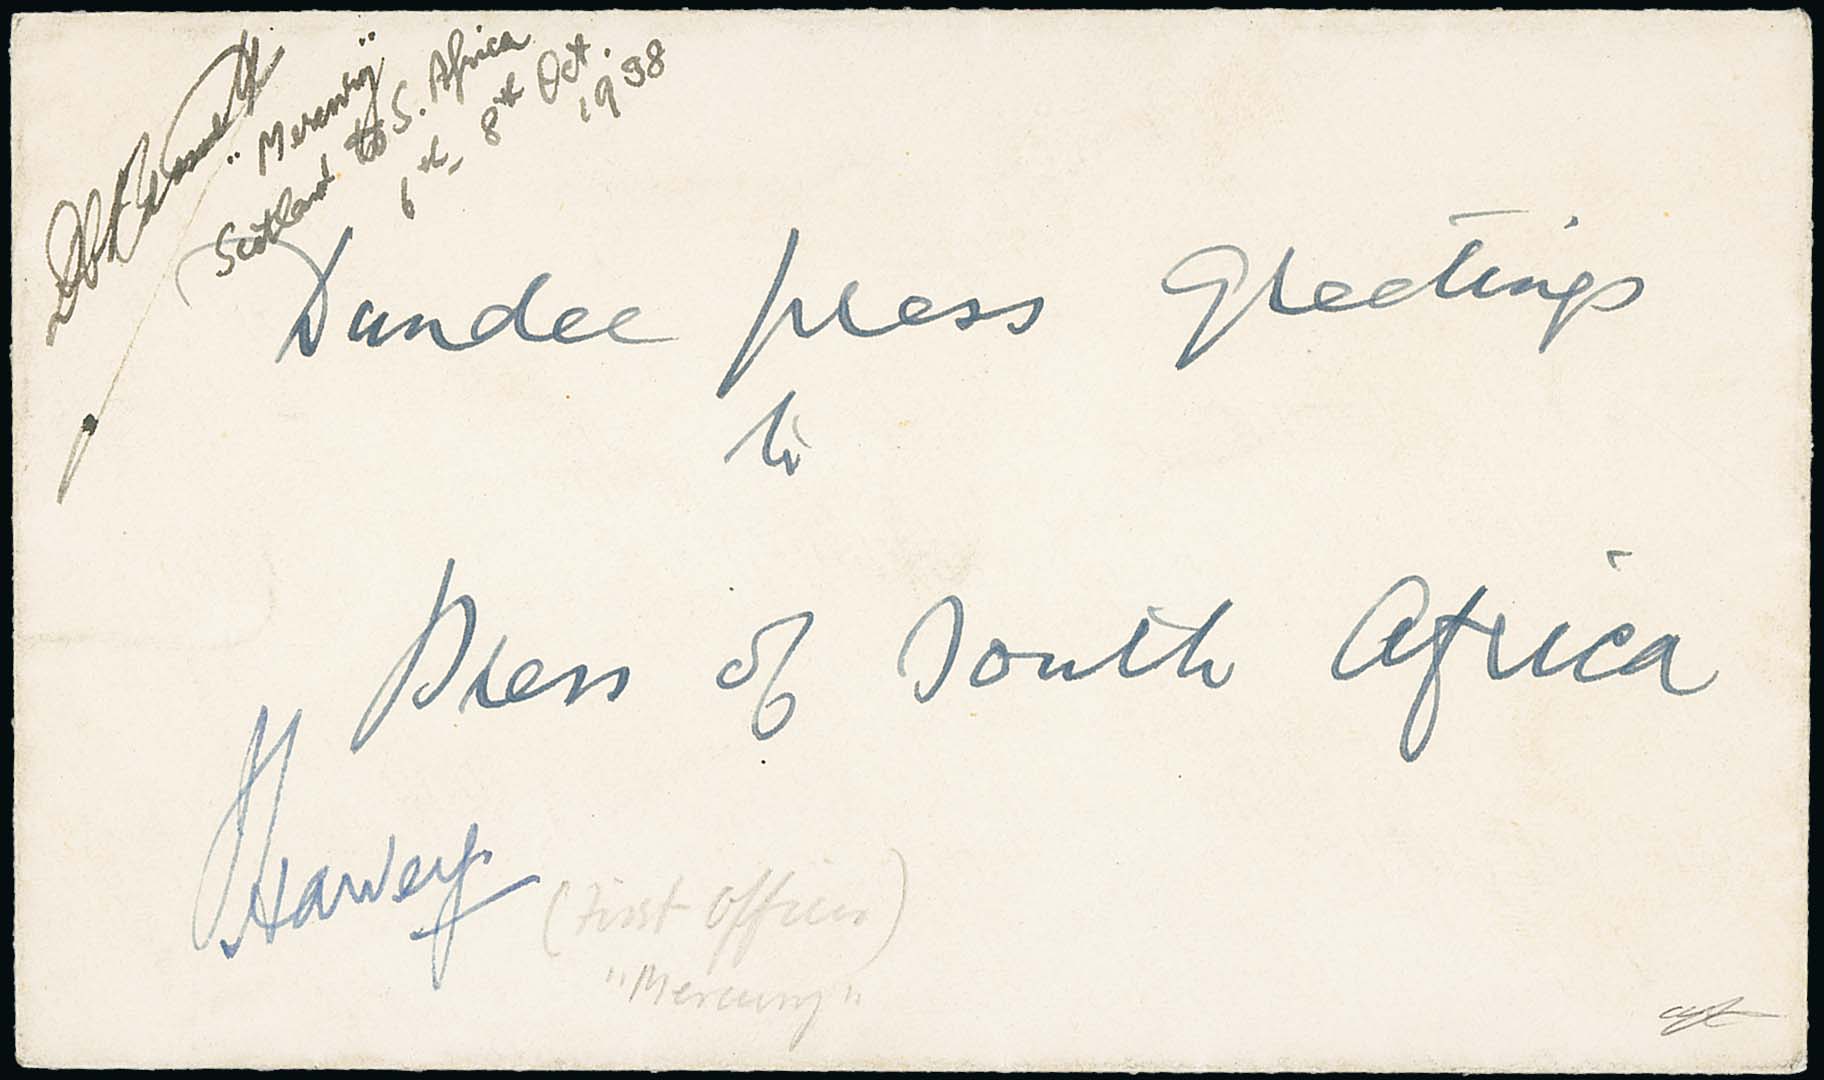 D C T Bennett
"Mercury"
Scotland to S. Africa
6th - 8th Oct.
1938
Dundee press greetings
to
Press of South Africa
Harvey
(First Officer)
"Mercury"